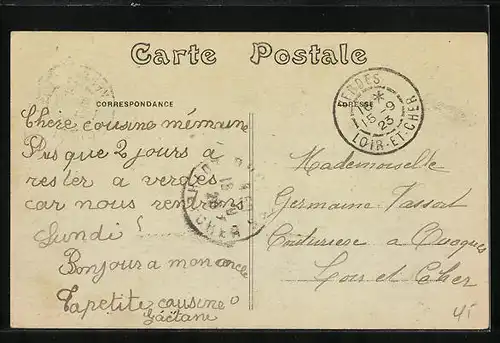 Carte Postale
CORRESPONDANCE
ADRESSE
Chère cousine mémaine
Pus que 2 jours à
rester a verdes
car nous rendrons
Lundi !
Bonjours a mon oncle
Ta petite cousine
Gaétane
ERDES
*
15 -9
23
LOIR-ET-CHER
Mademoiselle
Germaine
Couturiere a Ouques
Loir et Cher